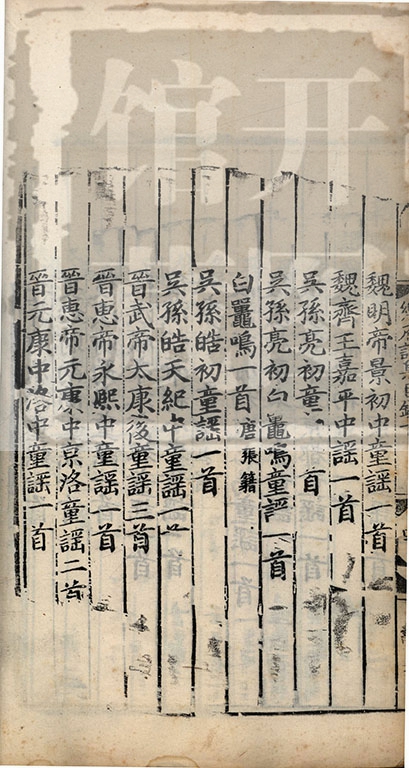 魏明帝景初中童謡一首
魏齊王嘉平中謡一首
吳孫亮初童謡一首
吳孫亮初白鼉鳴童謡一首
白鼉鳴一首 唐張籍
吳孫皓初童謡一首
吳孫皓天紀中童謡一首
晉武帝太康後童謡三首
晉惠帝永熙中童謡一首
晉惠帝元康中京洛童謡二首
晉元康中洛中童謡一首
开
馆